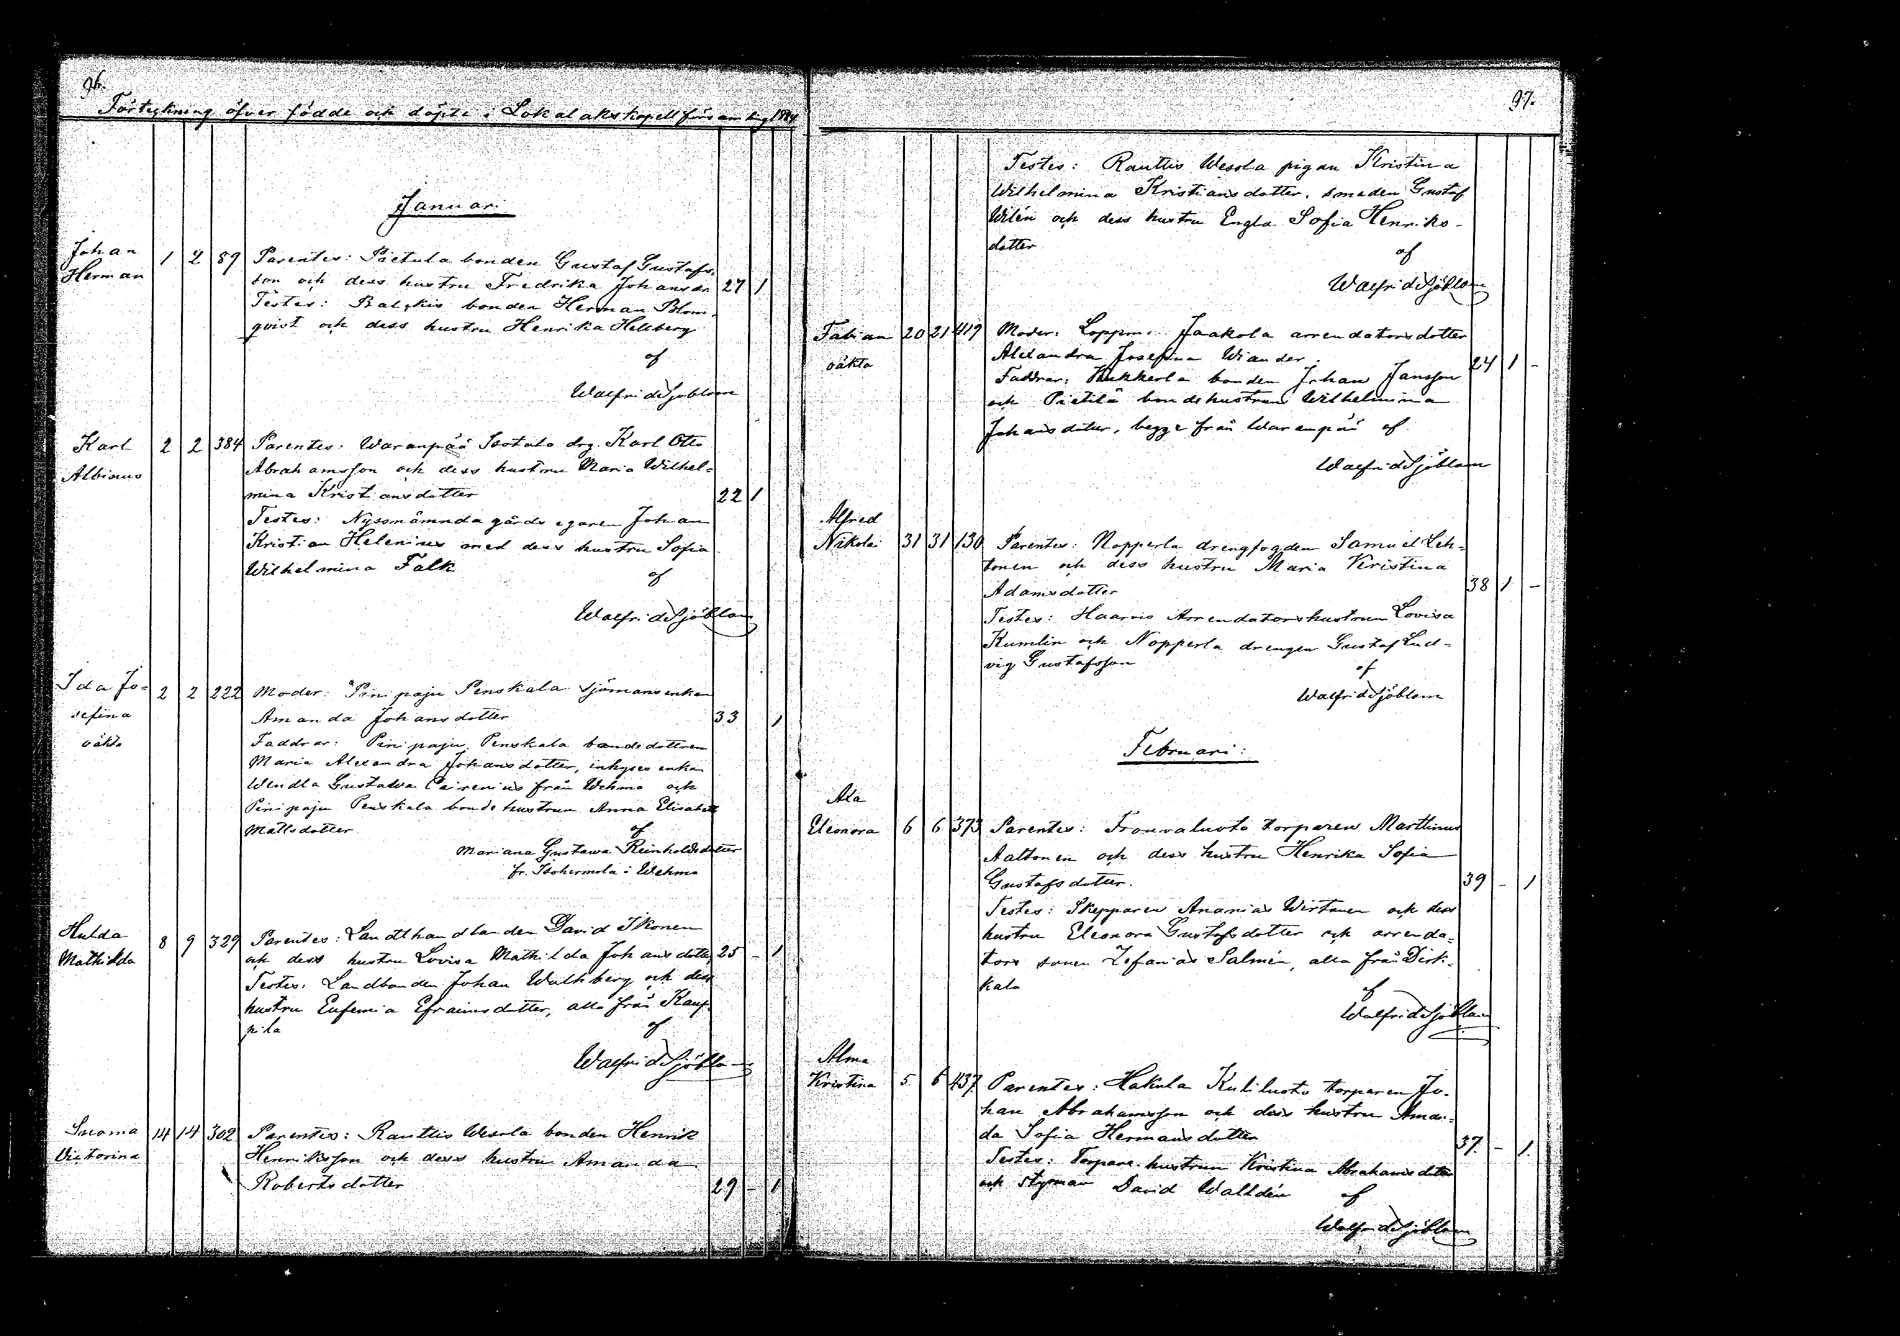 96.
Förteckning öfver födde och döpte i Lokalaks kapellförsamling
Januari
Johan Herman 1 2 89 Parentes: Pietula bonden Gustaf Gustafs-
son och dess hustru Fredrika Johansdr 27 1
Testes: Balskis bonden Herman Blom-
qvist och dess hustru Henrika Hellberg
af
Walfrid Sjöblom
Karl Albinus 2 2 384 Parentes: Waranpää Isotalo drg. Karl Otto
Abrahamsson och dess hustru Maria Wilhel-
mina Kristiansdotter 22 1
Testes: Nyssnämnda gårds egaren Johan
Kristian Helenius med dess hustru Sofia
Wilhelmina Falk
af
Walfrid Sjöblom
Ida Jo-
sefina
oäkta 2 2 222 Moder: Pinipaju Penskala sjömansenkan
Amanda Johansdotter 33 1
Faddrar: Pinipaju Penskala bondedottren
Maria Alexandra Johansdotter, inhyses enkan
Wendla Gustawa från Wehmo och
Pinipaju Penskala bondehustrun Anna Elisabet
Mattsdotter
af
Mariana Gustawa Reinholdsdotter
fr. Isohermola i Wehmo
Hulda Mathilda 8 9 329 Parentes: Landthandlanden David Ikonen
och dess hustru Lovisa Mathilda Johansdotter 25 – 1
Testes: Landbonden Johan Wallberg och dess
hustru Eufemia Efraimsdotter, alla från Kaup-
pila
af
Walfrid Sjöblom
Suoma Victorina 14 14 302 Parentes: Rautlis Wesola bonden Henrik
Henriksson och dess hustru Amanda
Robertsdotter 29 – 1
97.
Testes: Rautlis Wesola pigan Kristina
Wilhelmina Kristiansdotter, smeden Gustaf
Wilén och dess hustru Engla Sofia Henriks-
dotter
af
Walfrid Sjöblom
Fabian
oäkta 20 21 419 Moder: Jaakola arrendatorsdotter
Alexandra Josefina Wiander. 24 1 –
Faddrar: Kukkerla bonden Johan Jansson
och Pietilä bondehustrun Wilhelmina
Johansdotter, begge från Waranpää af
Walfrid Sjöblom
Alfred
Nikolai 31 31 130 Parentes: Nopperla drengfogden Samuel Leh-
tonen och dess hustru Maria Kristina
Adamsdotter 38 1 –
Testes: Haarvis Arrendatorshustrun Lovisa
Kumlin och Nopperla drengen Gustaf Lud-
vig Gustafsson
af
Walfrid Sjöblom
Februari:
Ada
Eleonora 6 6 373 Parentes: Trouvaluoto torparen Marttinus
Aaltonen och dess hustru Henrika Sofia
Gustafsdotter. 39 – 1
Testes: Skepparen Ananias Wirtanen och dess
hustru Eleonora Gustafsdotter och arrenda-
tors sonen Zefanias Salmén, alla från Pirk-
kala
af
Walfrid Sjöblom
Alma
Kristina 5. 6 437 Parentes: Hakula Kuliluoto torparen Jo-
han Abrahamsson och dess hustru Aman-
da Sofia Hermansdotter 37. – 1.
Testes: Torpare hustrun Kristina Abrahamsdotter
och styrman David Walldén af
Walfrid Sjöblom